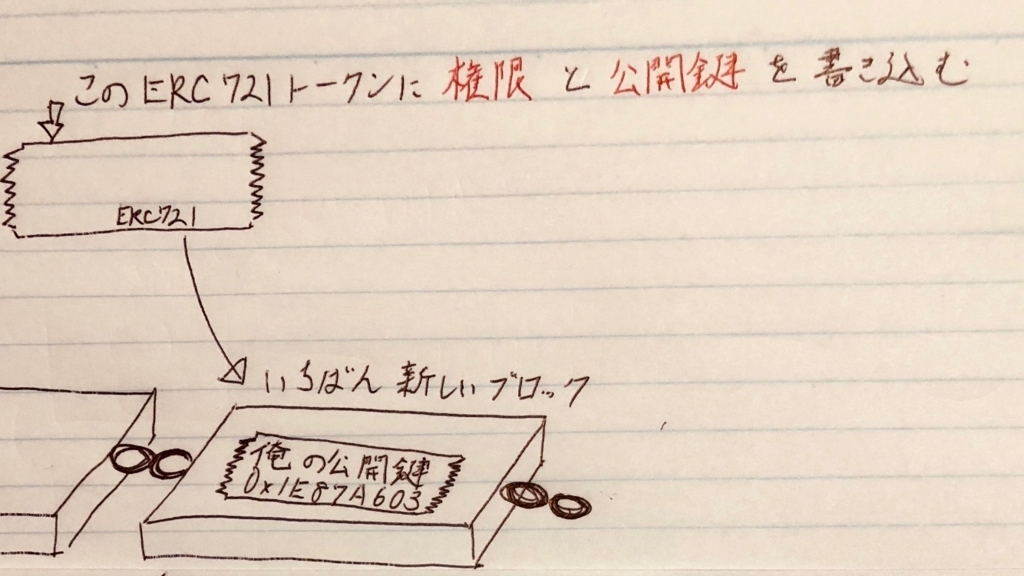 このERC721トークンに 権限 と 公開鍵 を 書き込む
ERC721
いちばん 新しいブロック
俺の公開鍵
0x1E87A603